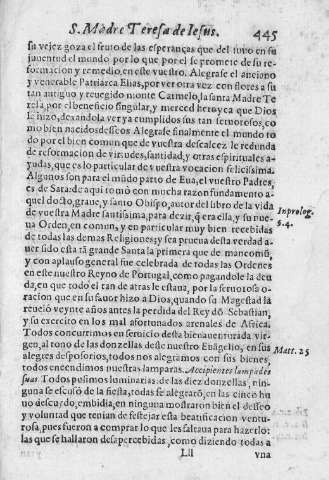 S. Madre Teresa de Iesus. 445
su vejez goza el fruto de las esperanças que del tuvo en su
juuentud el mundo por lo que por el se promete de su re-
formacion y remedio, en este vuestro. Alegrase el anciano
y venerable Patriarca Elias, por ver otra vez con flores a su
tan antiguo y reuegido monte Carmelo, la santa Madre Te
resa por el beneficio singular, y merced heroyca que Dios
le hizo, dexandola ver ya cumplidos sus tan feruorosos, co
mo bien nacidos desseos Alegrase finalmente el mundo to
do por el bien comun que de vuestra descalcez le redunda
de reformacion de virtudes, santidad, y otras espirituales a-
yudas, que es lo particular de vuestra vocacion felicissima.
Algunos son para el mũdo parto de Eua, el vuestro Padres,
es de Sara: de aqui tomò con mucha razon fundamento a-
quel docto, graue, y santo Obispo, autor del libro de la vida
de vuestra Madre santissima, para dezir, q̃ era ella, y su nue-
ua Orden, en comun, y en particular muy bien recebidas
de todas las demas Religiones; y sea prueua desta verdad a-
uer sido esta tã grande Santa la primera que de mancomũ,
y con aplauso general fue celebrada de todas las Ordenes
en este nuestro Reyno de Portugal, como pagandole la deu
da, en que todo el tan de atras le estaua, por la feruorosa o-
racion que en su fauor hizo a Dios, quando su Magestad la
reuelò veynte años antes la perdida del Rey dõ Sebastian,
y su exercito en los mal afortunados arenales de Africa.
Todos concurrimos en seruicio desta bienauenturada vir-
gen, al tono de las donzellas desse nuestro Euãgelio, en sus
alegres desposorios, todos nos alegramos con sus bienes,
todos encendimos nuestras lamparas. Accipientes lampades
suas Todos pusimos luminarias. de las diez donzellas, nin-
guna se escusò de la fiesta, todas se alegrarõ, en las cinco hu
uo descuydo, embidia, en ninguna mostraron bien el desseo
y voluntad que tenian de festejar esta beatificacion ventu-
rosa, pues fueron a comprar lo que les faltaua para hazerlo:
las que se hallaron desapercebidas, como diziendo todas a
Lll vna
In prolog.
§.4.
Matt. 25